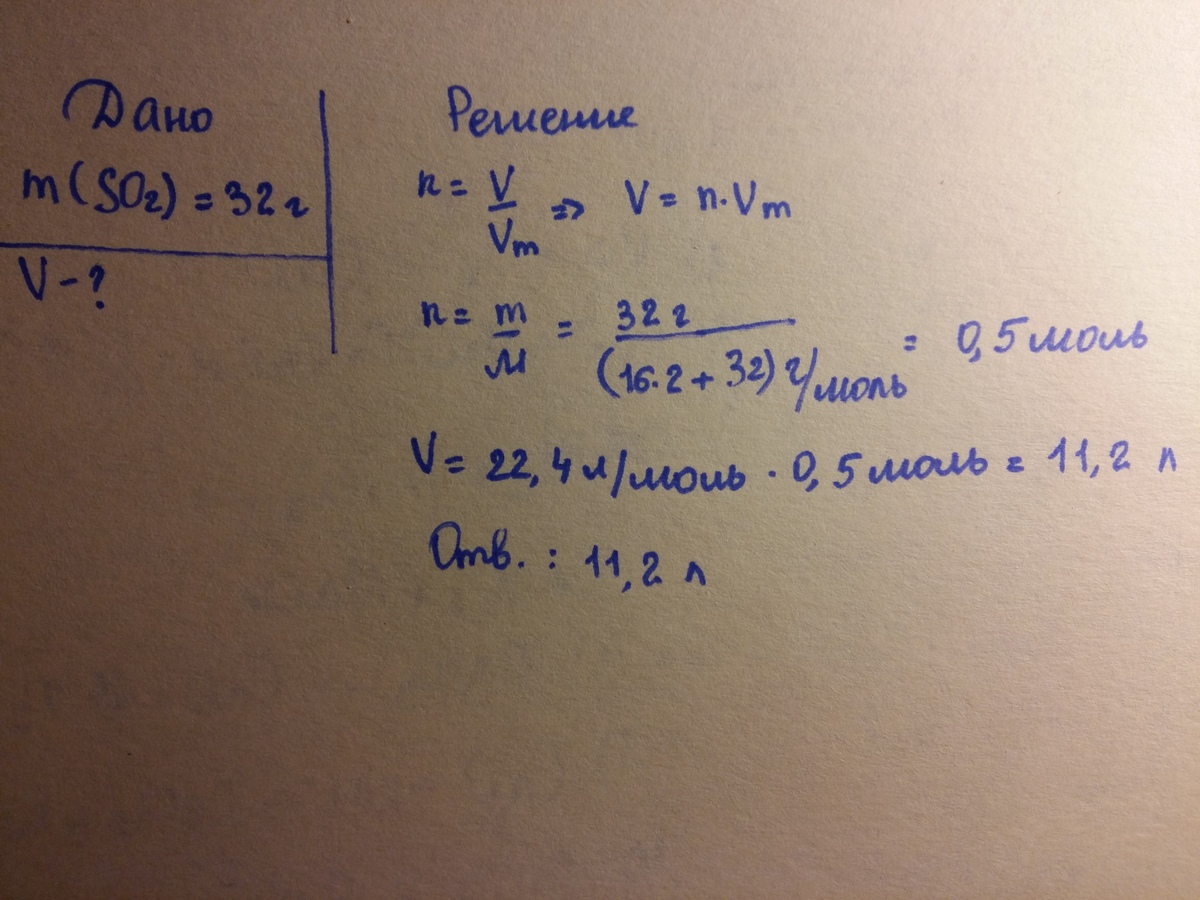 Дано
m(SO₂) = 32 г
V - ?
Решение
n = V/Vm => V = n·Vm
n = m/M = 32 г/(16·2 + 32) г/моль = 0,5 моль
V = 22,4 л/моль · 0,5 моль = 11,2 л
Отв. : 11,2 л